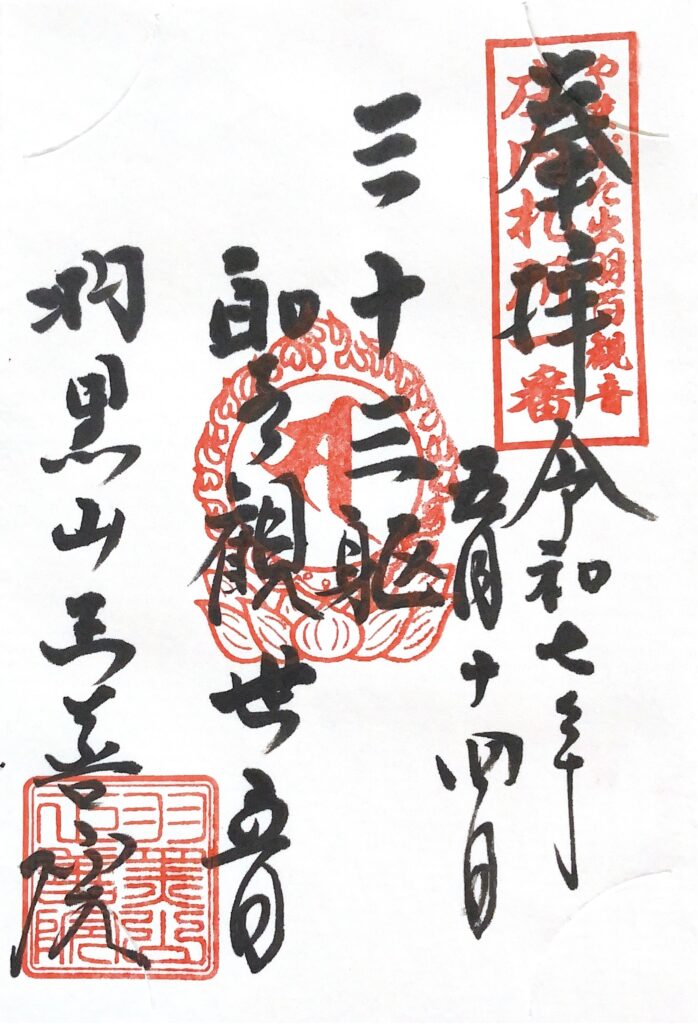 奉拝
やまがた出羽百観音
庄内札所一番
令和七年
五月十四日
三十三躯
聖観世音
羽黒山正善院
羽黒山正善院